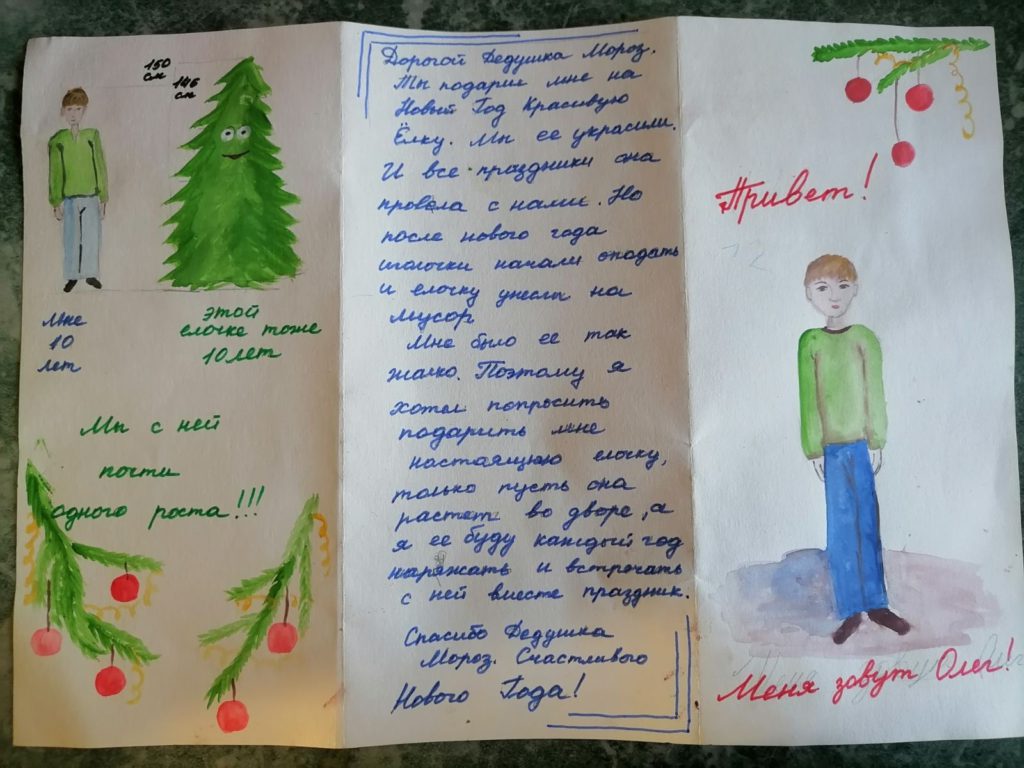 150
см
146
см
Мне
10
лет
этой
елочке тоже
10 лет
Мы с ней
почти
одного роста!!!
Дорогой Дедушка Мороз.
Ты подарил мне на
Новый Год Красивую
Ёлку. Мы ее украсили.
И все праздники она
провела с нами. Но
после нового года
иголочки начали опадать
и елочку унесли на
мусор
Мне было ее так
жалко. Поэтому я
хотел попросить
подарить мне
настоящую елочку,
только пусть она
растет во дворе, а
я ее буду каждый год
наряжать и встречать
с ней вместе праздник.
Спасибо Дедушка
Мороз. Счастливого
Нового Года!
Привет!
Меня зовут Олег!